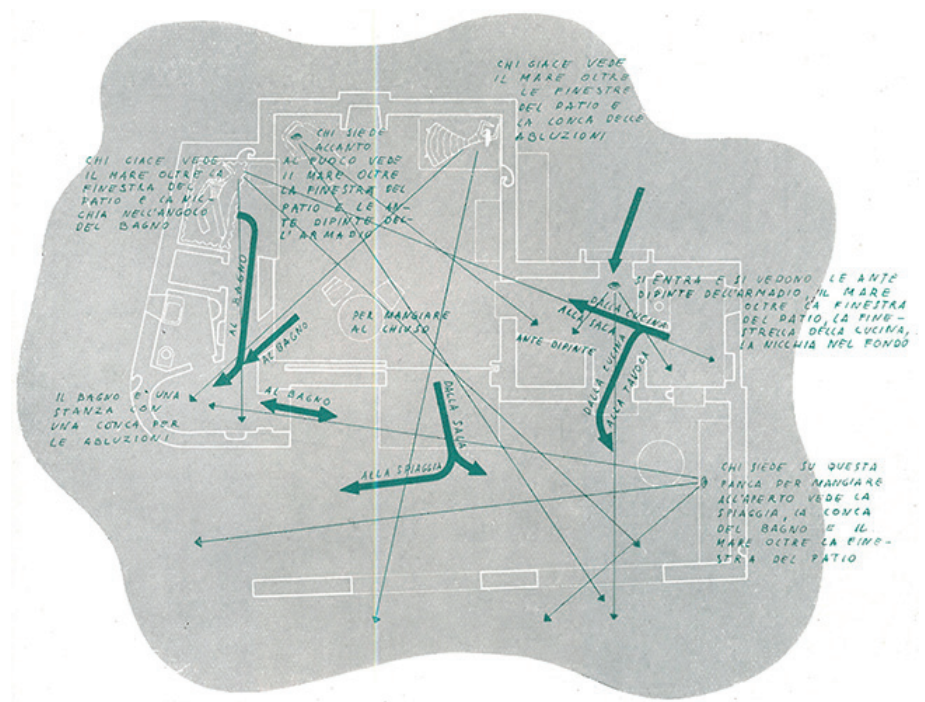 CHI GIACE VEDE
IL MARE OLTRE
LE FINESTRE
DEL PATIO E
LA CONCA DELLE
ABLUZIONI
CHI SIEDE
ACCANTO
AL FUOCO VEDE
IL MARE OLTRE
LA FINESTRA DEL
PATIO E LE AN-
TE DIPINTE DEL-
L'ARMADIO
CHI GIACE VEDE
IL MARE OLTRE LA
FINESTRA DEL
PATIO E LA NIC-
CHIA NELL'ANGOLO
DEL BAGNO
SI ENTRA E SI VEDONO LE ANTE
DIPINTE DELL'ARMADIO, IL MARE
OLTRE LA FINESTRA
DEL PATIO, LA FINE-
STRELLA DELLA CUCINA,
LA NICCHIA NEL FONDO
AL BAGNO
AL BAGNO
PER MANGIARE
AL CHIUSO
DALLA CUCINA
ALLA SALA
ANTE DIPINTE
DALLA CUCINA
ALLA TAVOLA
IL BAGNO E' UNA
STANZA CON
UNA CONCA PER
LE ABLUZIONI
AL BAGNO
DALLA SALA
ALLA SPIAGGIA
CHI SIEDE SU QUESTA
PANCA PER MANGIARE
ALL'APERTO VEDE LA
SPIAGGIA, LA CONCA
DEL BAGNO E IL
MARE OLTRE LA FINE-
STRA DEL PATIO